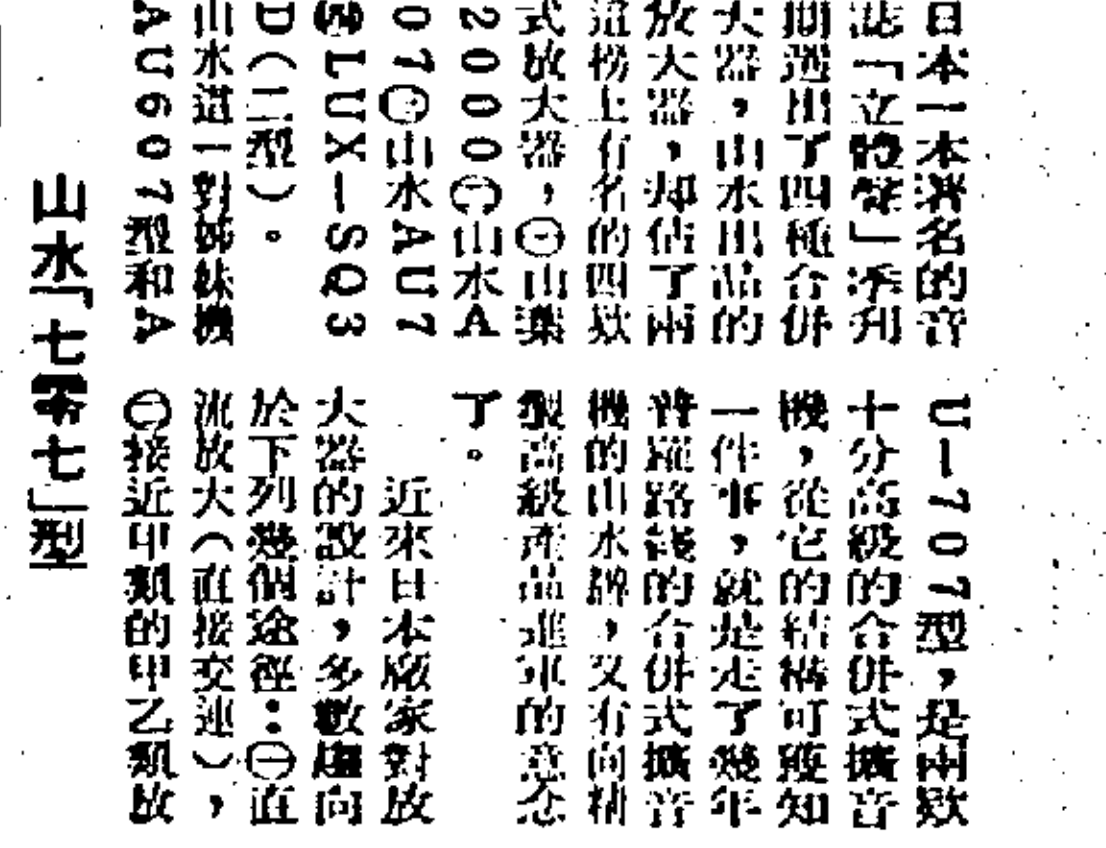 日本一本著名的音
誌「立體聲」季刊
期選出了四種合併
大器，山水出品的
放大器，却佔了兩
這榜上有名的四欵
式放大器，㊀山葉
2000㊁山水A
07㊂山水AU7
LUX－SQ3
D（二型）。
山水這一對姊妹機
AU607型和A
U－707型，是兩欵
十分高級的合併式擴音
機，從它的結構可獲知
一件事，就是走了幾年
普羅路綫的合併式擴音
機的山水牌，又有向精
製高級產品進軍的意念
了。
近來日本廠家對放
大器的設計，多數趨向
於下列幾個途徑：㊀直
流放大（直接交連），
㊁接近甲類的甲乙類放
山水「七零七」型